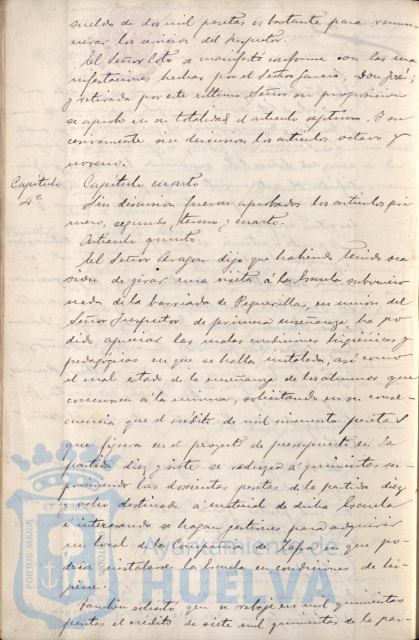 sueldo de dos mil pesetas es bastante para remu-
nerar los servicios del Inspector.
El Señor Coto se manifestó conforme con las ma-
nifestaciones hechas por el Señor García, Don José;
y retirada por este ultimo Señor su proposicion
se aprobó en su totalidad el articulo septimo. Y su-
cesivamente sin discusion los articulos octavo y
noveno.
Capitulo 4º
Capitulo cuarto
Sin discusion fueron aprobados los articulos pri-
mero, segundo, tercero y cuarto.
Articulo quinto.
El Señor Aragon dijo que habiendo tenido oca-
sion de girar una visita á la Escuela subvencio-
nada de la barriada de Peguerillas, en union del
Señor Inspector de primera enseñanza, ha po-
dido apreciar las malas condiciones higienicas y
pedagógicas en que se halla instalada, así como
el mal estado de la enseñanza de los alumnos que
concurren á la misma, solicitando en su conse-
cuencia que el crédito de mil cincuenta pesetas
que figura en el proyecto de presupuesto en la
partida diez y siete se reduzca á quinientas su-
primiendo las doscientas pesetas de la partida diez
y ocho destinada á material de dicha Escuela
é interesando se hagan gestiones para adquirir
un local de la Compañia de Zafra en que po-
dria instalarse la Escuela en condiciones de hi-
giene.
Tambien solicitó que se rebaje en mil quinientas
pesetas el crédito de siete mil quinientas de la par-
PORTUS MARIS
ET TERRAE
Ayuntamiento de
HUELVA